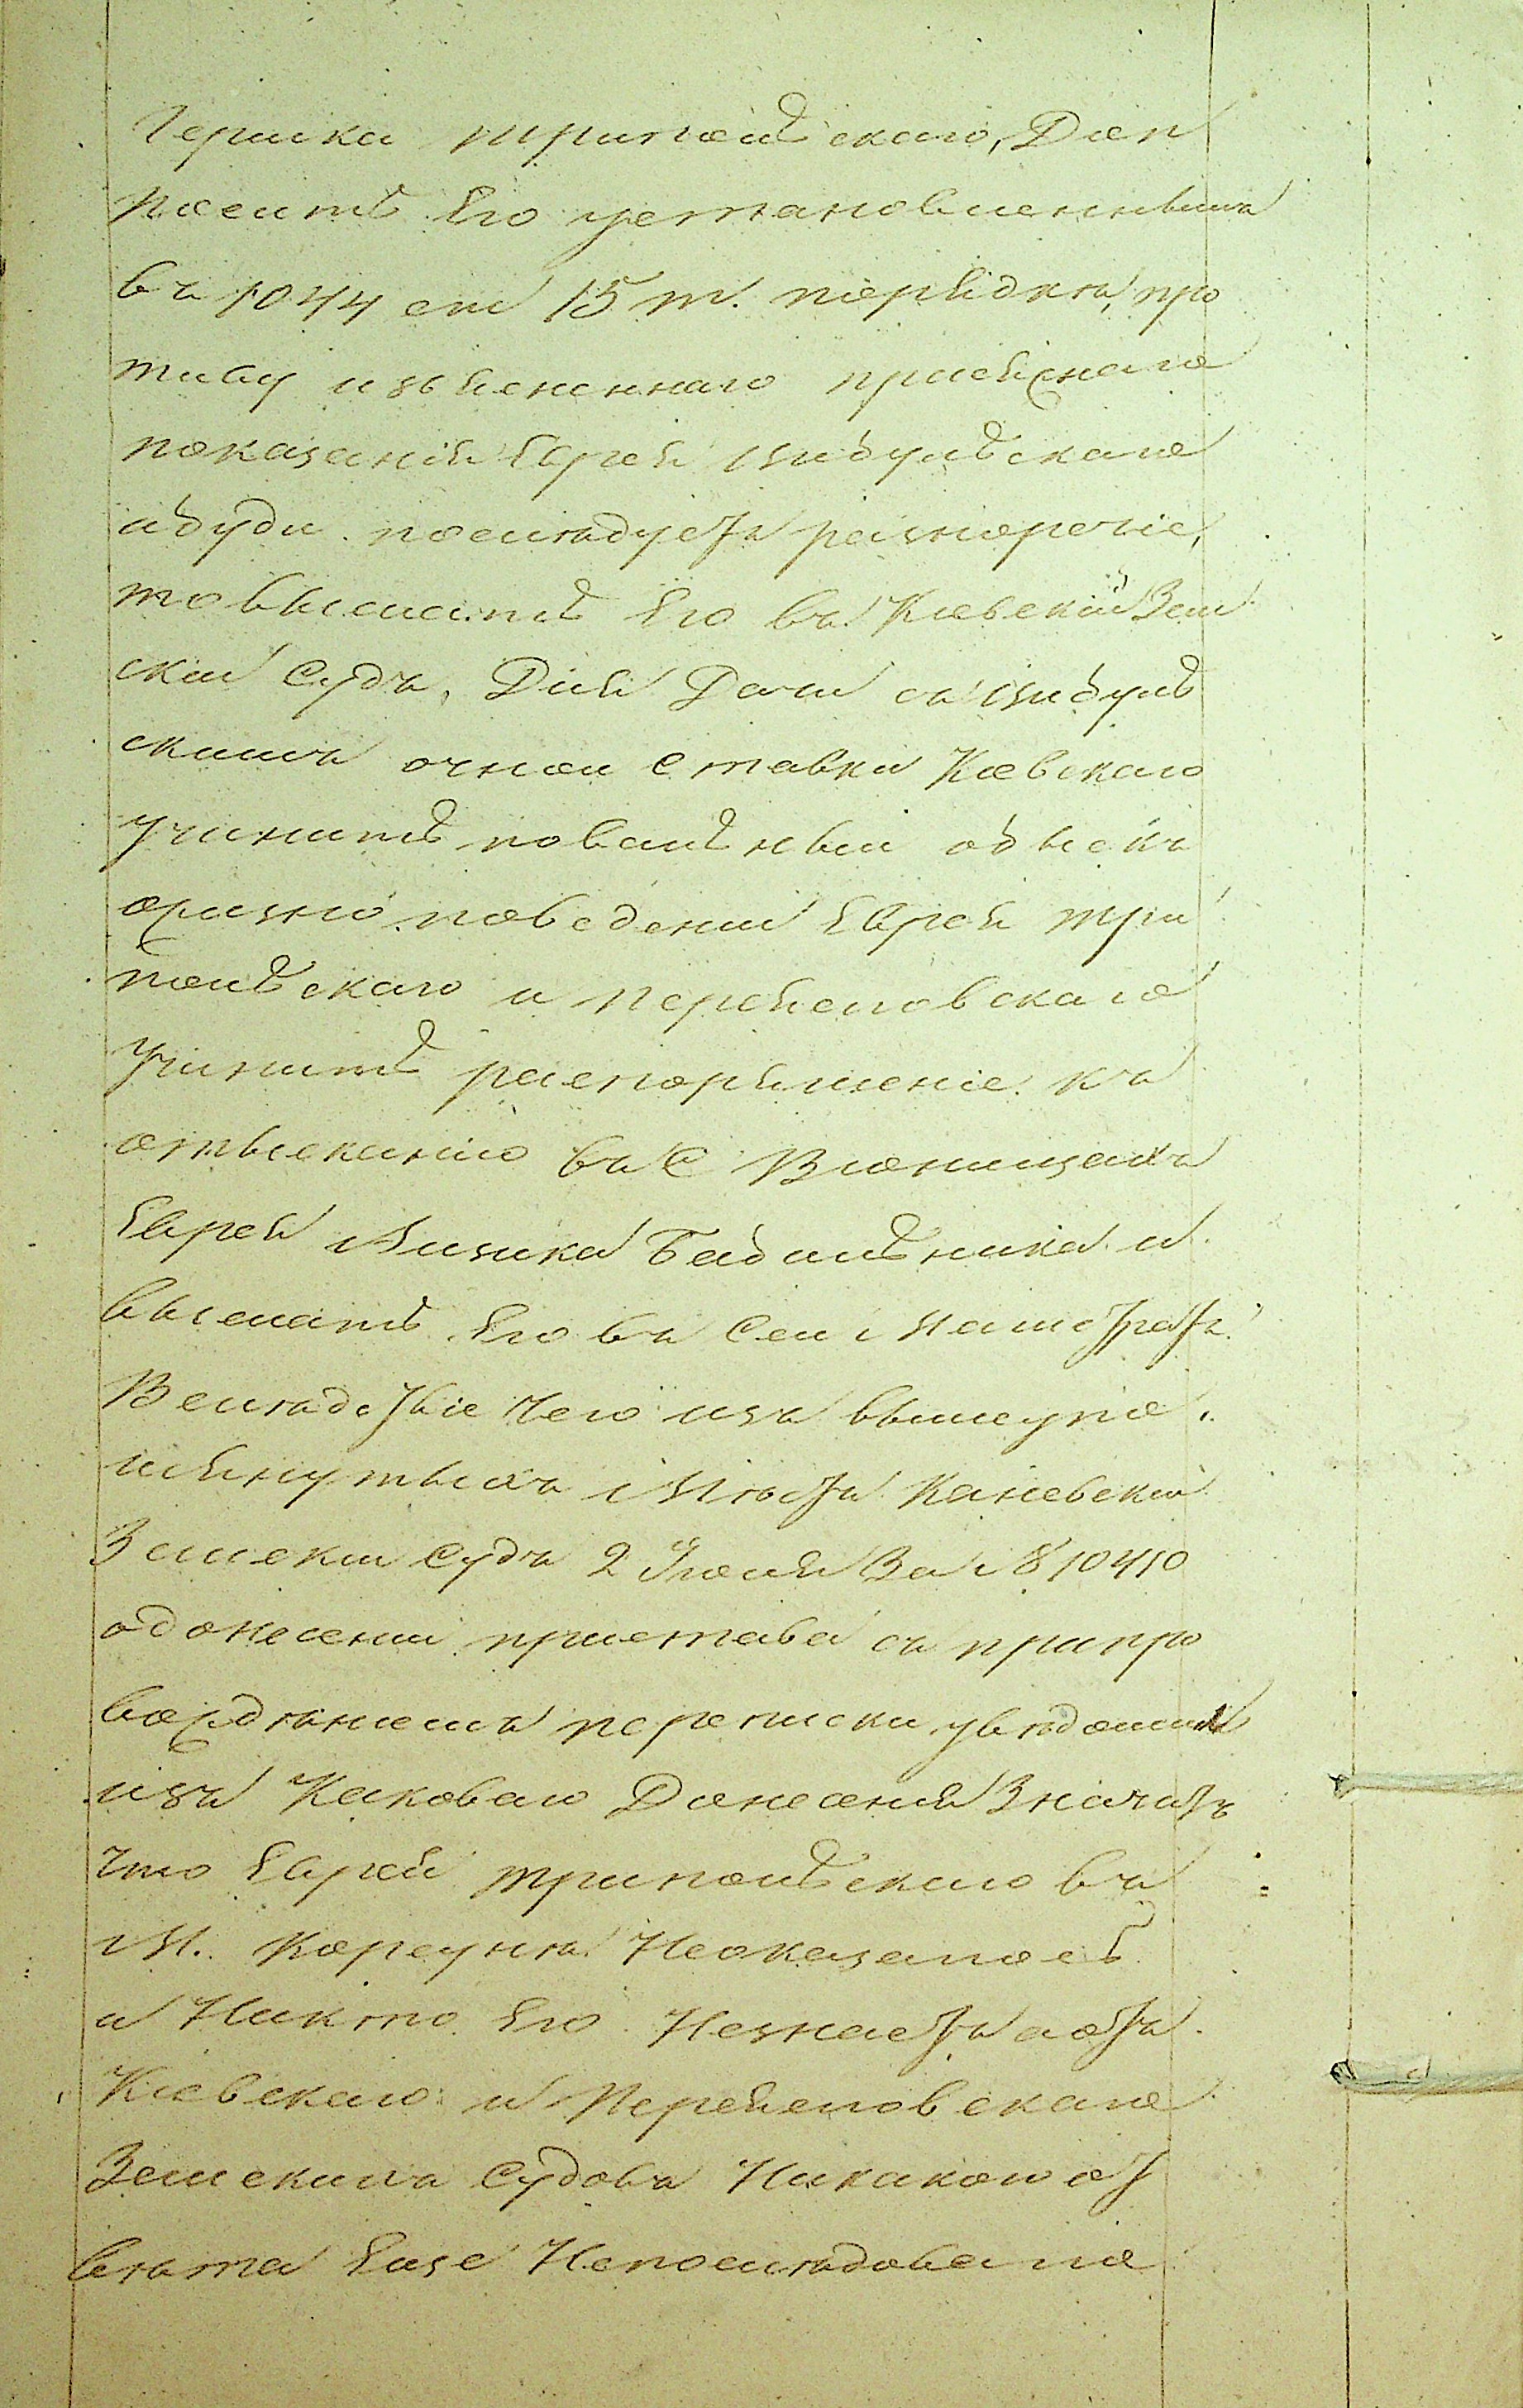 Гершка Трипольскаго, Доп
росить Его установленнымъ
въ 1044 ст 15 т. порядкѣ, про
тиву изъясненнаго присяжнаго
показанія Еврея Цибульскаго
ибуди послѣдуетъ разноречіе,
то выслать Его въ Кіевскій Зем
скій Судъ, Для Дачи съ Цибуль
скимъ очной ставки Кіевскаго
учинить повальный обыскъ
ожизни поведеніи Еврея Три
польскаго и Переяславскаго
Учинить распоряженіе къ
отысканію въ С Вюнищахъ
Еврея Аизика Бабильника и
выслать Его въ Сей Магистратъ.
Вслѣдствіе чего изъ вышеупо
мянутыхъ Мѣстъ Каневскій
Земскій Судъ 2 Іюля За № 10410
одонесеніи пристава съ припро
вожденіемъ переписки увѣдомилъ
изъ Каковаго Донесенія Значитъ
что Еврея Трипольскаго въ
М. Корсунѣ Неоказалось
и Никто Его Незнаетъ аотъ
Кіевскаго и Переяславскаго
Земскихъ Судовъ Никакого от
вѣта Еще Непослѣдовало